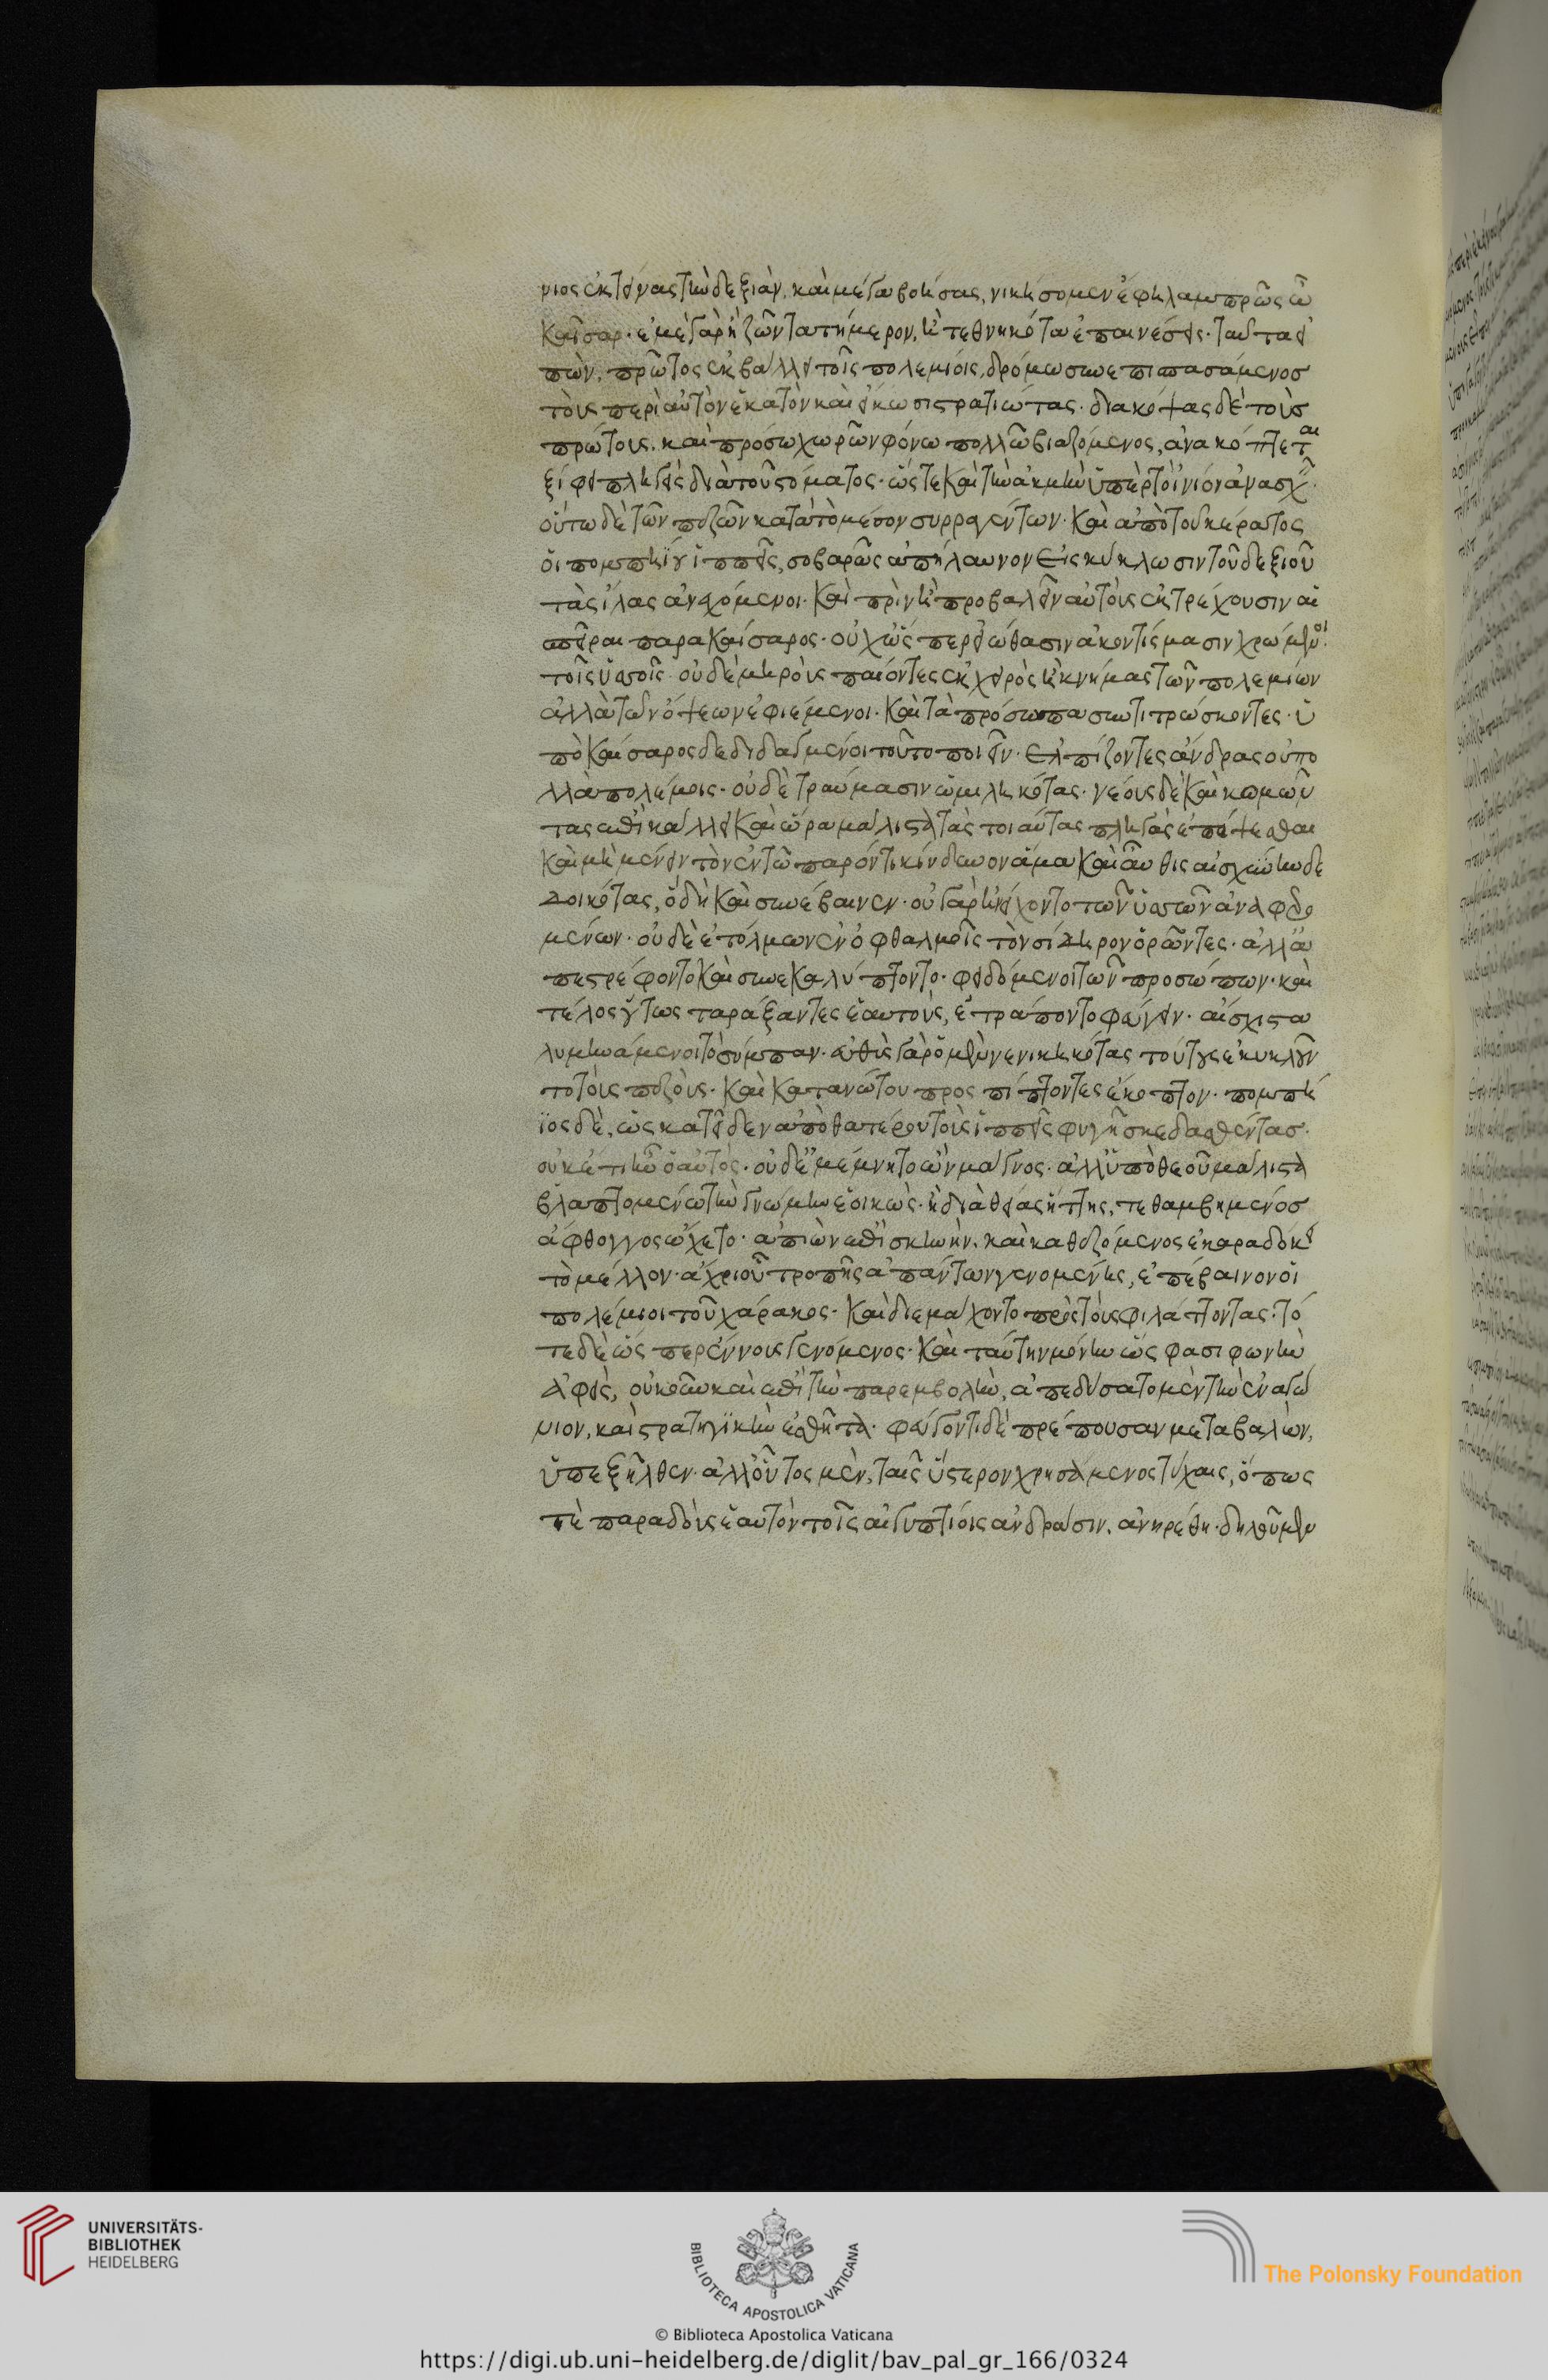 νιος ἐκτείνας τὴν δεξιὰν, καὶ μέγα βοήσας, νικήσομεν ἔφη λαμπρῶς ὦ
Καῖσαρ· ἐμὲ γὰρ ἢ ζῶντα τήμερον, ἢ τεθνηκότα ἐπαινέσεις· ταῦτα εἰ
πὼν, πρῶτος ἐμβάλλει τοῖς πολεμίοις, δρόμω συνεπισπασάμενος
τοὺς περὶ αὐτὸν ἑκατὸν καὶ εἴκωσι στρατιώτας· διακόψας δὲ τοὺς
πρώτους, καὶ πρόσω χωρῶν φόνω πολλῶ βιαζόμενος, ἀνακόπτεται
ξίφει πληγεὶς διὰ τοῦ στόματος· ὥστε καὶ τὴν ἀκμὴν ὑπὲρ τὸ ἰνίον ἀνασχεῖν·
οὕτω δὲ τῶν πεζῶν κατὰ τὸ μέσον συρραγέντων· καὶ ἀπὸ τοῦ κέρατος
οἱ πομπηΐου ἱππεῖς, σοβαρῶς ἀπήλαυνον εἰς κύκλωσιν τοῦ δεξιοῦ
τὰς ἴλας ἀναχόμενοι· καὶ πρὶν ἢ προβαλεῖν αὐτοὺς ἐκτρέχουσιν αἱ
σπεῖραι παρὰ Καίσαρος· οὐχ ὥσπερ εἰώθασιν ἀκοντίσμασιν χρώμενοι
τοῖς ὑσσοῖς· οὐδὲ μηροὺς παίοντες ἐκ χειρὸς ἢ κνήμας τῶν πολεμίων
ἀλλὰ τῶν ὄψεων ἐφιέμενοι· καὶ τὰ πρόσωπα συντιτρώσκοντες· ὑ
πὸ Καίσαρος δεδιδαγμένοι τοῦτο ποιεῖν· ἐλπίζοντες ἄνδρας οὐ πο
λλὰ πολέμοις· οὐδὲ τραύμασιν ὡμιληκότας· νέους δὲ καὶ κομῶν
τας ἐπὶ κάλλει καὶ ὥρα μάλιστα τὰς τοιαύτας πληγὰς ὑπόψεσθαι
καὶ μὴ μένειν τὸν ἐν τῶ παρόντι κίνδυνον ἅμα καὶ αὖθις αἰσχύνην δε
δοικότας, ὃ δὴ καὶ συνέβαινεν· οὐ γὰρ ἠνείχοντο τῶν ὑσσῶν ἀναφερο
μένων· οὐδὲ ἐτόλμων ἐν ὀφθαλμοῖς τὸν σίδηρον ὁρῶντες· ἀλλ' ἀ
πεστρέφοντο καὶ συνεκαλύπτοντο· φειδόμενοι τῶν προσώπων· καὶ
τέλος οὕτως ταράξαντες ἑαυτοὺς, ἐτράποντο φεύγειν· αἴσχιστα
λυμηνάμενοι τὸ σύμπαν· εὐθὺς γὰρ οἱ μὲν νενικηκότες τούτους ἐκυκλοῦν
το τοὺς πεζοὺς· καὶ κατανώτου προσπίπτοντες ἔκοπτον· πομπή
ϊος δὲ, ὡς κατεῖδεν ἀπὸ θατέρου τοὺς ἱππεῖς φυγῆ σκεδασθέντας·
οὐκέτι ἦν ὁ αὐτὸς· οὐδ' ἐμέμνητο ὢν μάγνος· ἀλλ' ὑπὸ θεοῦ μάλιστα
βλαπτομένω τὴν γνώμην ἐοικὼς· ἢ διὰ θείας ἥττης, τεθαμβημένος
ἄφθογγος ὤχετο· ἀπιὼν ἐπὶ σκηνὴν, καὶ καθεζόμενος ἐκαραδόκει
τὸ μέλλον· ἄχρι οὗ τροπῆς ἁπάντων γενομένης, ἐπέβαινον οἱ
πολέμιοι τοῦ χάρακος· καὶ διεμάχοντο πρὸς τοὺς φυλάττοντας· τό
τε δὲ ὥσπερ ἔννους γενόμενος· καὶ ταύτην μόνην ὥς φασι φωνὴν
ἀφεὶς, οὐκοῦν καὶ ἐπὶ τὴν παρεμβολὴν, ἀπεδύσατο μὲν τὴν ἐναγώ
νιον, καὶ στρατηγϊκὴν ἐσθῆτα· φεύγοντι δὲ πρέπουσαν μεταβαλὼν,
ὑπεξῆλθεν· ἀλλ' οὗτος μὲν, ταῖς ὕστερον χρησάμενος τύχαις, ὅπως
τὲ παραδοὺς ἑαυτὸν τοῖς αἰγυπτίοις ἀνδράσιν, ἀνηρέθη· δηλοῦμεν
UNIVERSITÄTS-
BIBLIOTHEK
HEIDELBERG
BIBLIOTECA APOSTOLICA VATICANA
The Polonsky Foundation
© Biblioteca Apostolica Vaticana
https://digi.ub.uni-heidelberg.de/diglit/bav_pal_gr_166/0324